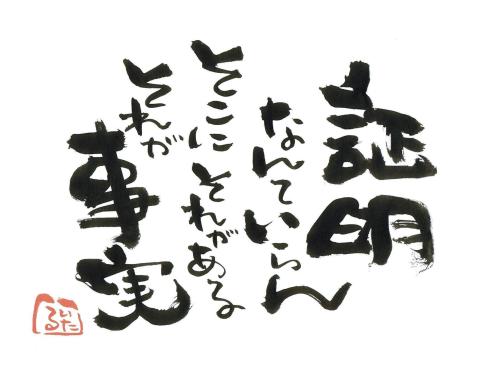 証明
なんていらん
そこにそれがある
それが
事実